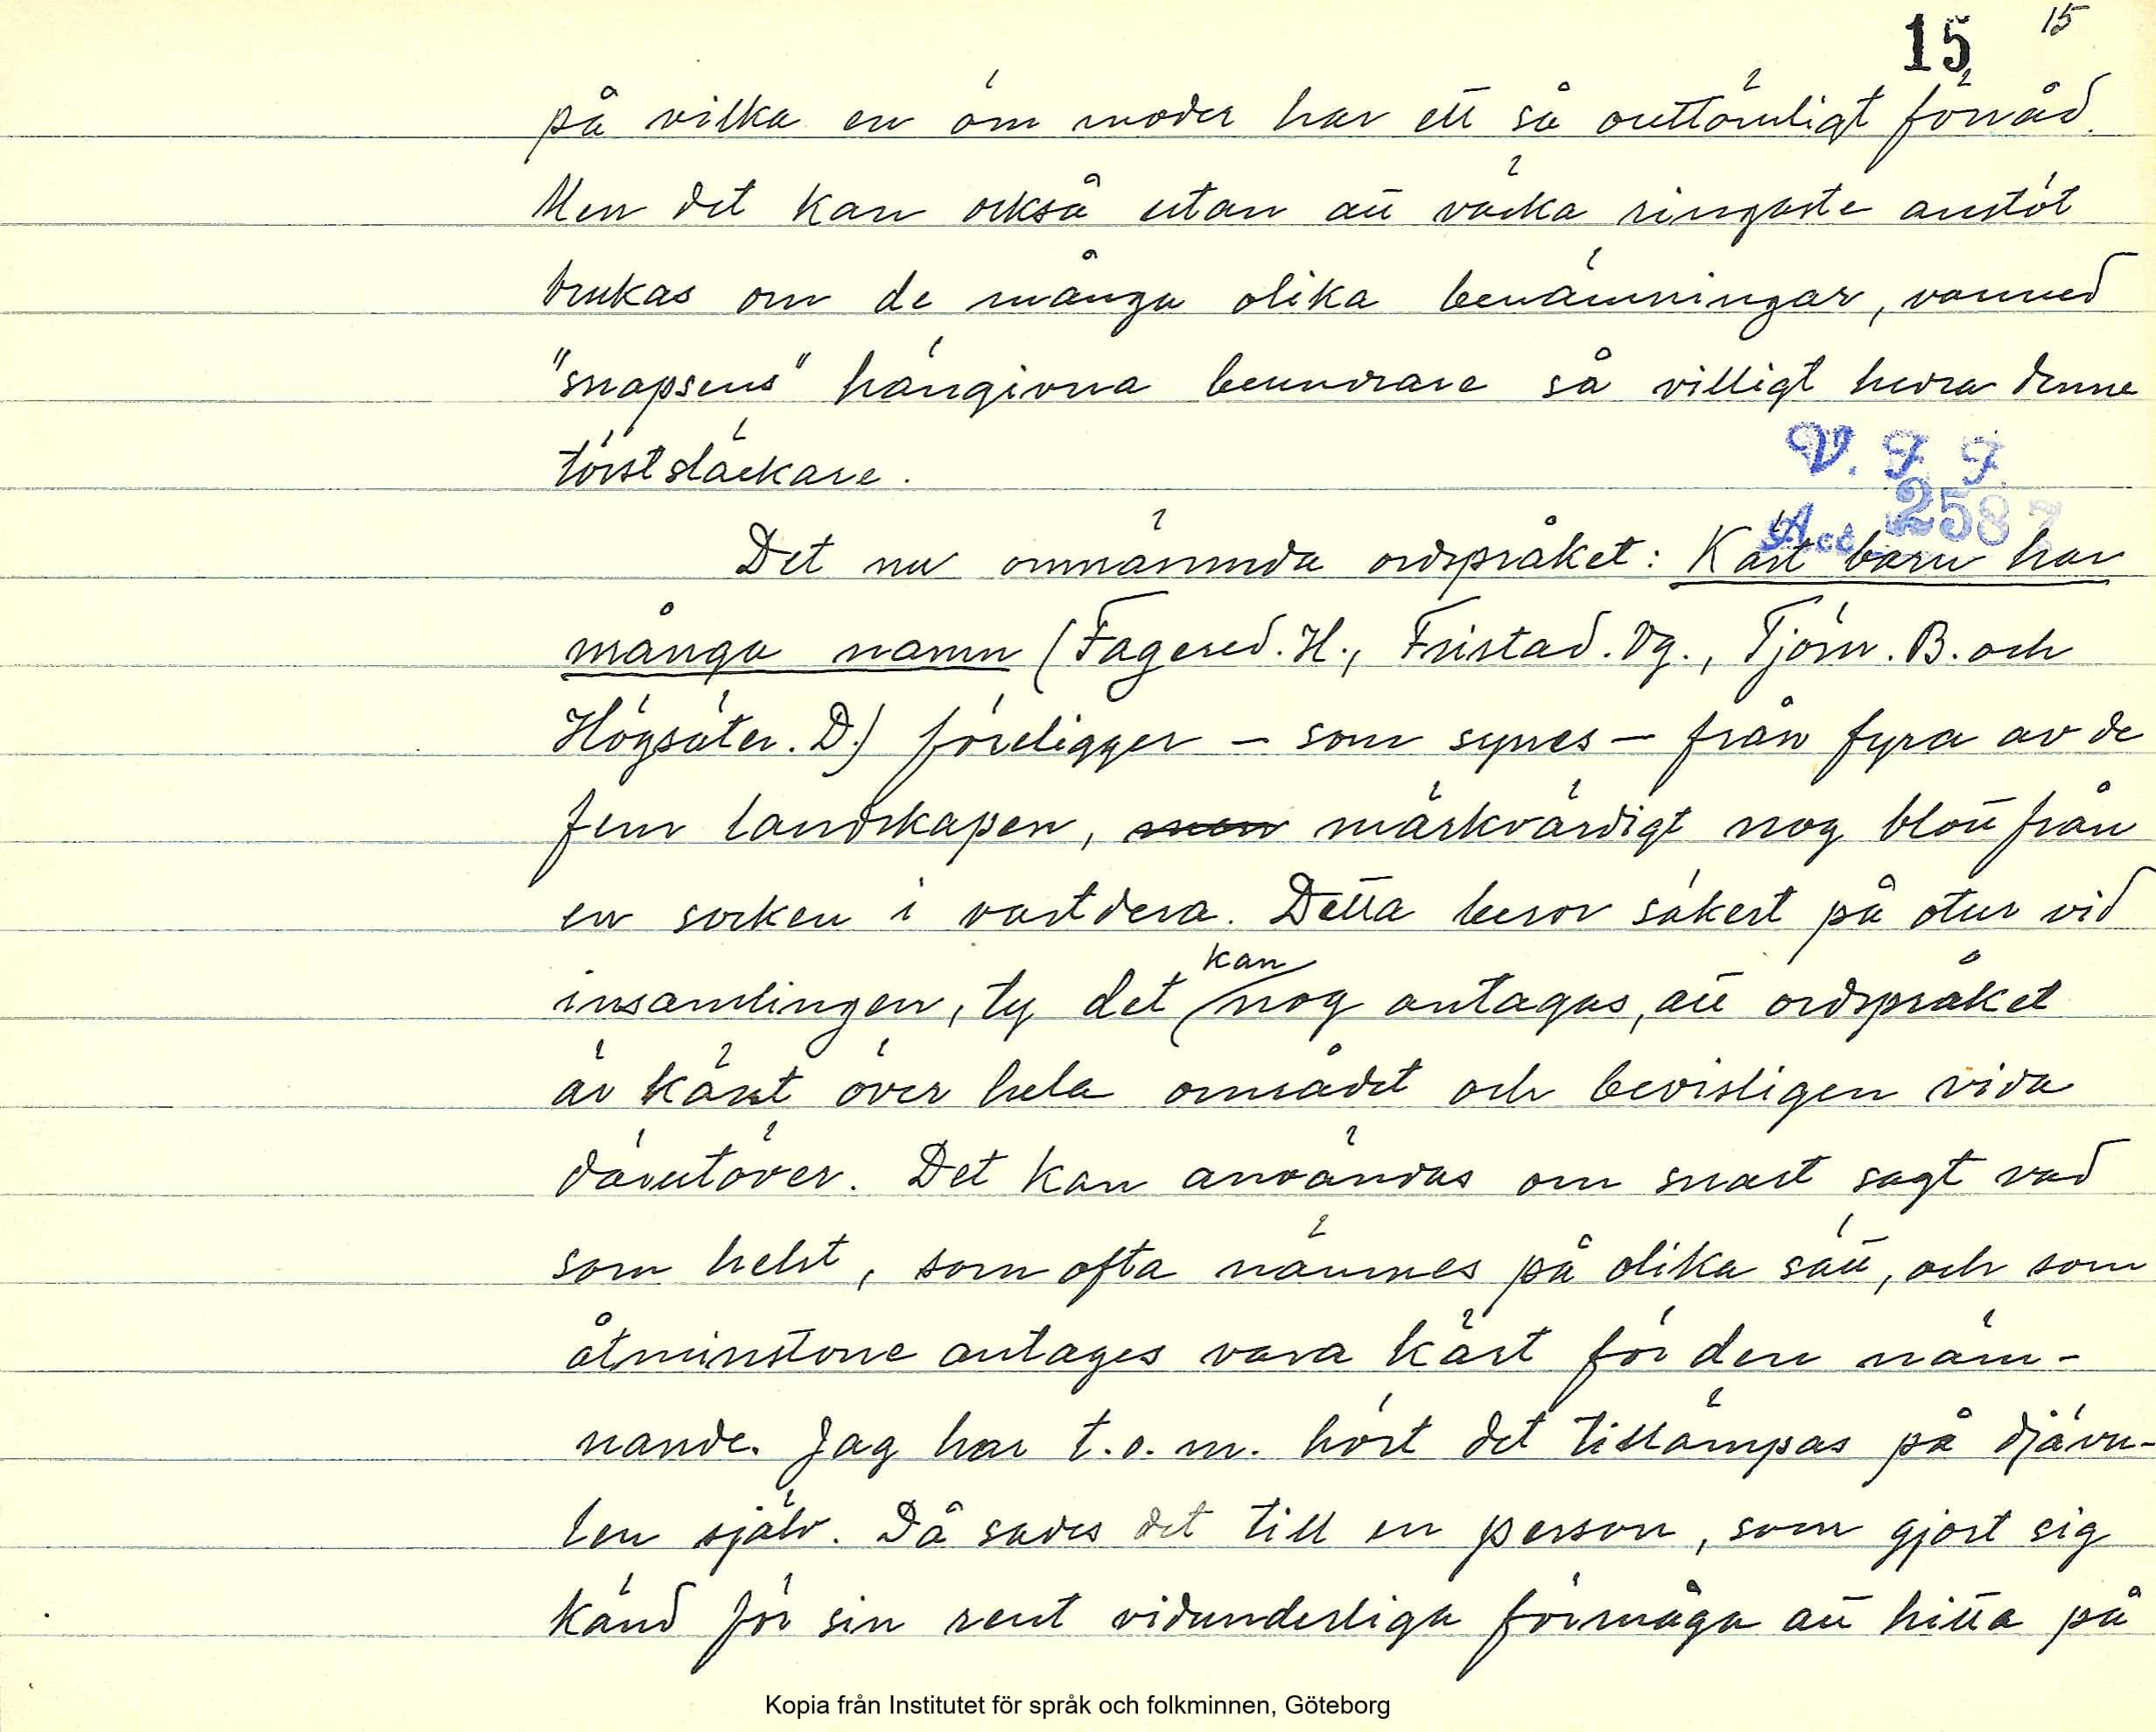 15 15
på vilka en öm moder har ett så outtömligt förråd.
Men det kan också utan att väcka ringaste anstöt
brukas om de många olika benämningar, varmed
"snapsens" hängivna beundrare så villigt hedra denne
törstsläckare.
V. F. F.
Acc. 2587
Det nu omnämnda ordspråket: Kärt barn har
många namn (Fagered. H., Fristad. Vg., Tjörn. B. och
Högsäter. D.) föreligger – som synes – från fyra av de
fem landskapen, men märkvärdigt nog blott från
en socken i vartdera. Detta beror säkert på otur vid
kan
insamlingen, ty det nog antagas, att ordspråket
är känt över hela området och bevisligen vida
därutöver. Det kan användas om snart sagt vad
som helst, som ofta nämnes på olika sätt, och som
åtminstone antages vara kärt för den näm-
nande. Jag har t.o.m. hört det tillämpas på djävu-
len själv. Då sades det till en person, som gjort sig
känd för sin rent vidunderliga förmåga att hitta på
Kopia från Institutet för språk och folkminnen, Göteborg